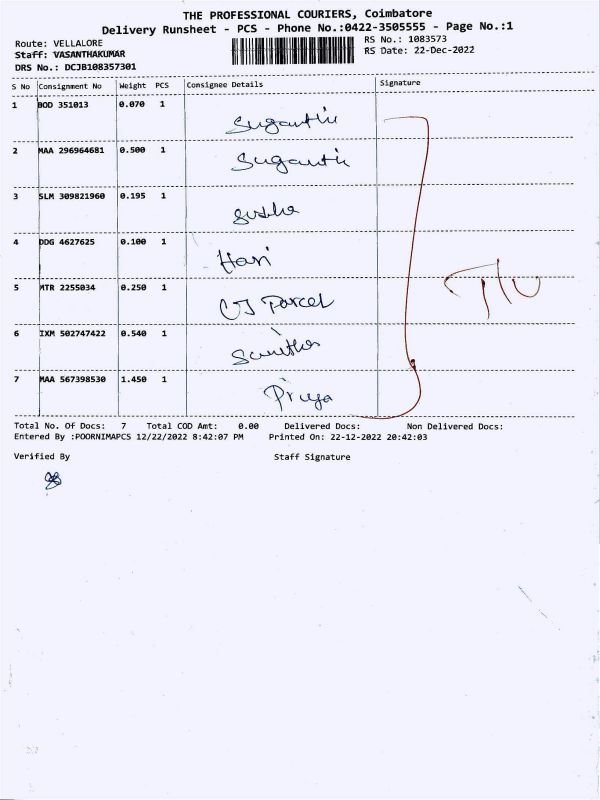 THE PROFESSIONAL COURIERS, Coimbatore
Delivery Runsheet - PCS - Phone No.:0422-3505555 - Page No.:1
Route: VELLALORE
Staff: VASANTHAKUMAR
DRS No.: DCJB108357301
RS No.: 1083573
RS Date: 22-Dec-2022
S No Consignment No Weight PCS Consignee Details Signature
1 BOD 351013 0.070 1 Suganthi
2 MAA 296964681 0.500 1 Suganthi
3 SLM 309821960 0.195 1
4 DDG 4627625 0.100 1 Hari
5 MTR 2255034 0.250 1 CJ Parcel
6 IXM 502747422 0.540 1
7 MAA 567398530 1.450 1 Priya
Total No. Of Docs: 7 Total COD Amt: 0.00 Delivered Docs: Non Delivered Docs:
Entered By :POORNIMAPCS 12/22/2022 8:42:07 PM Printed On: 22-12-2022 20:42:03
Verified By Staff Signature